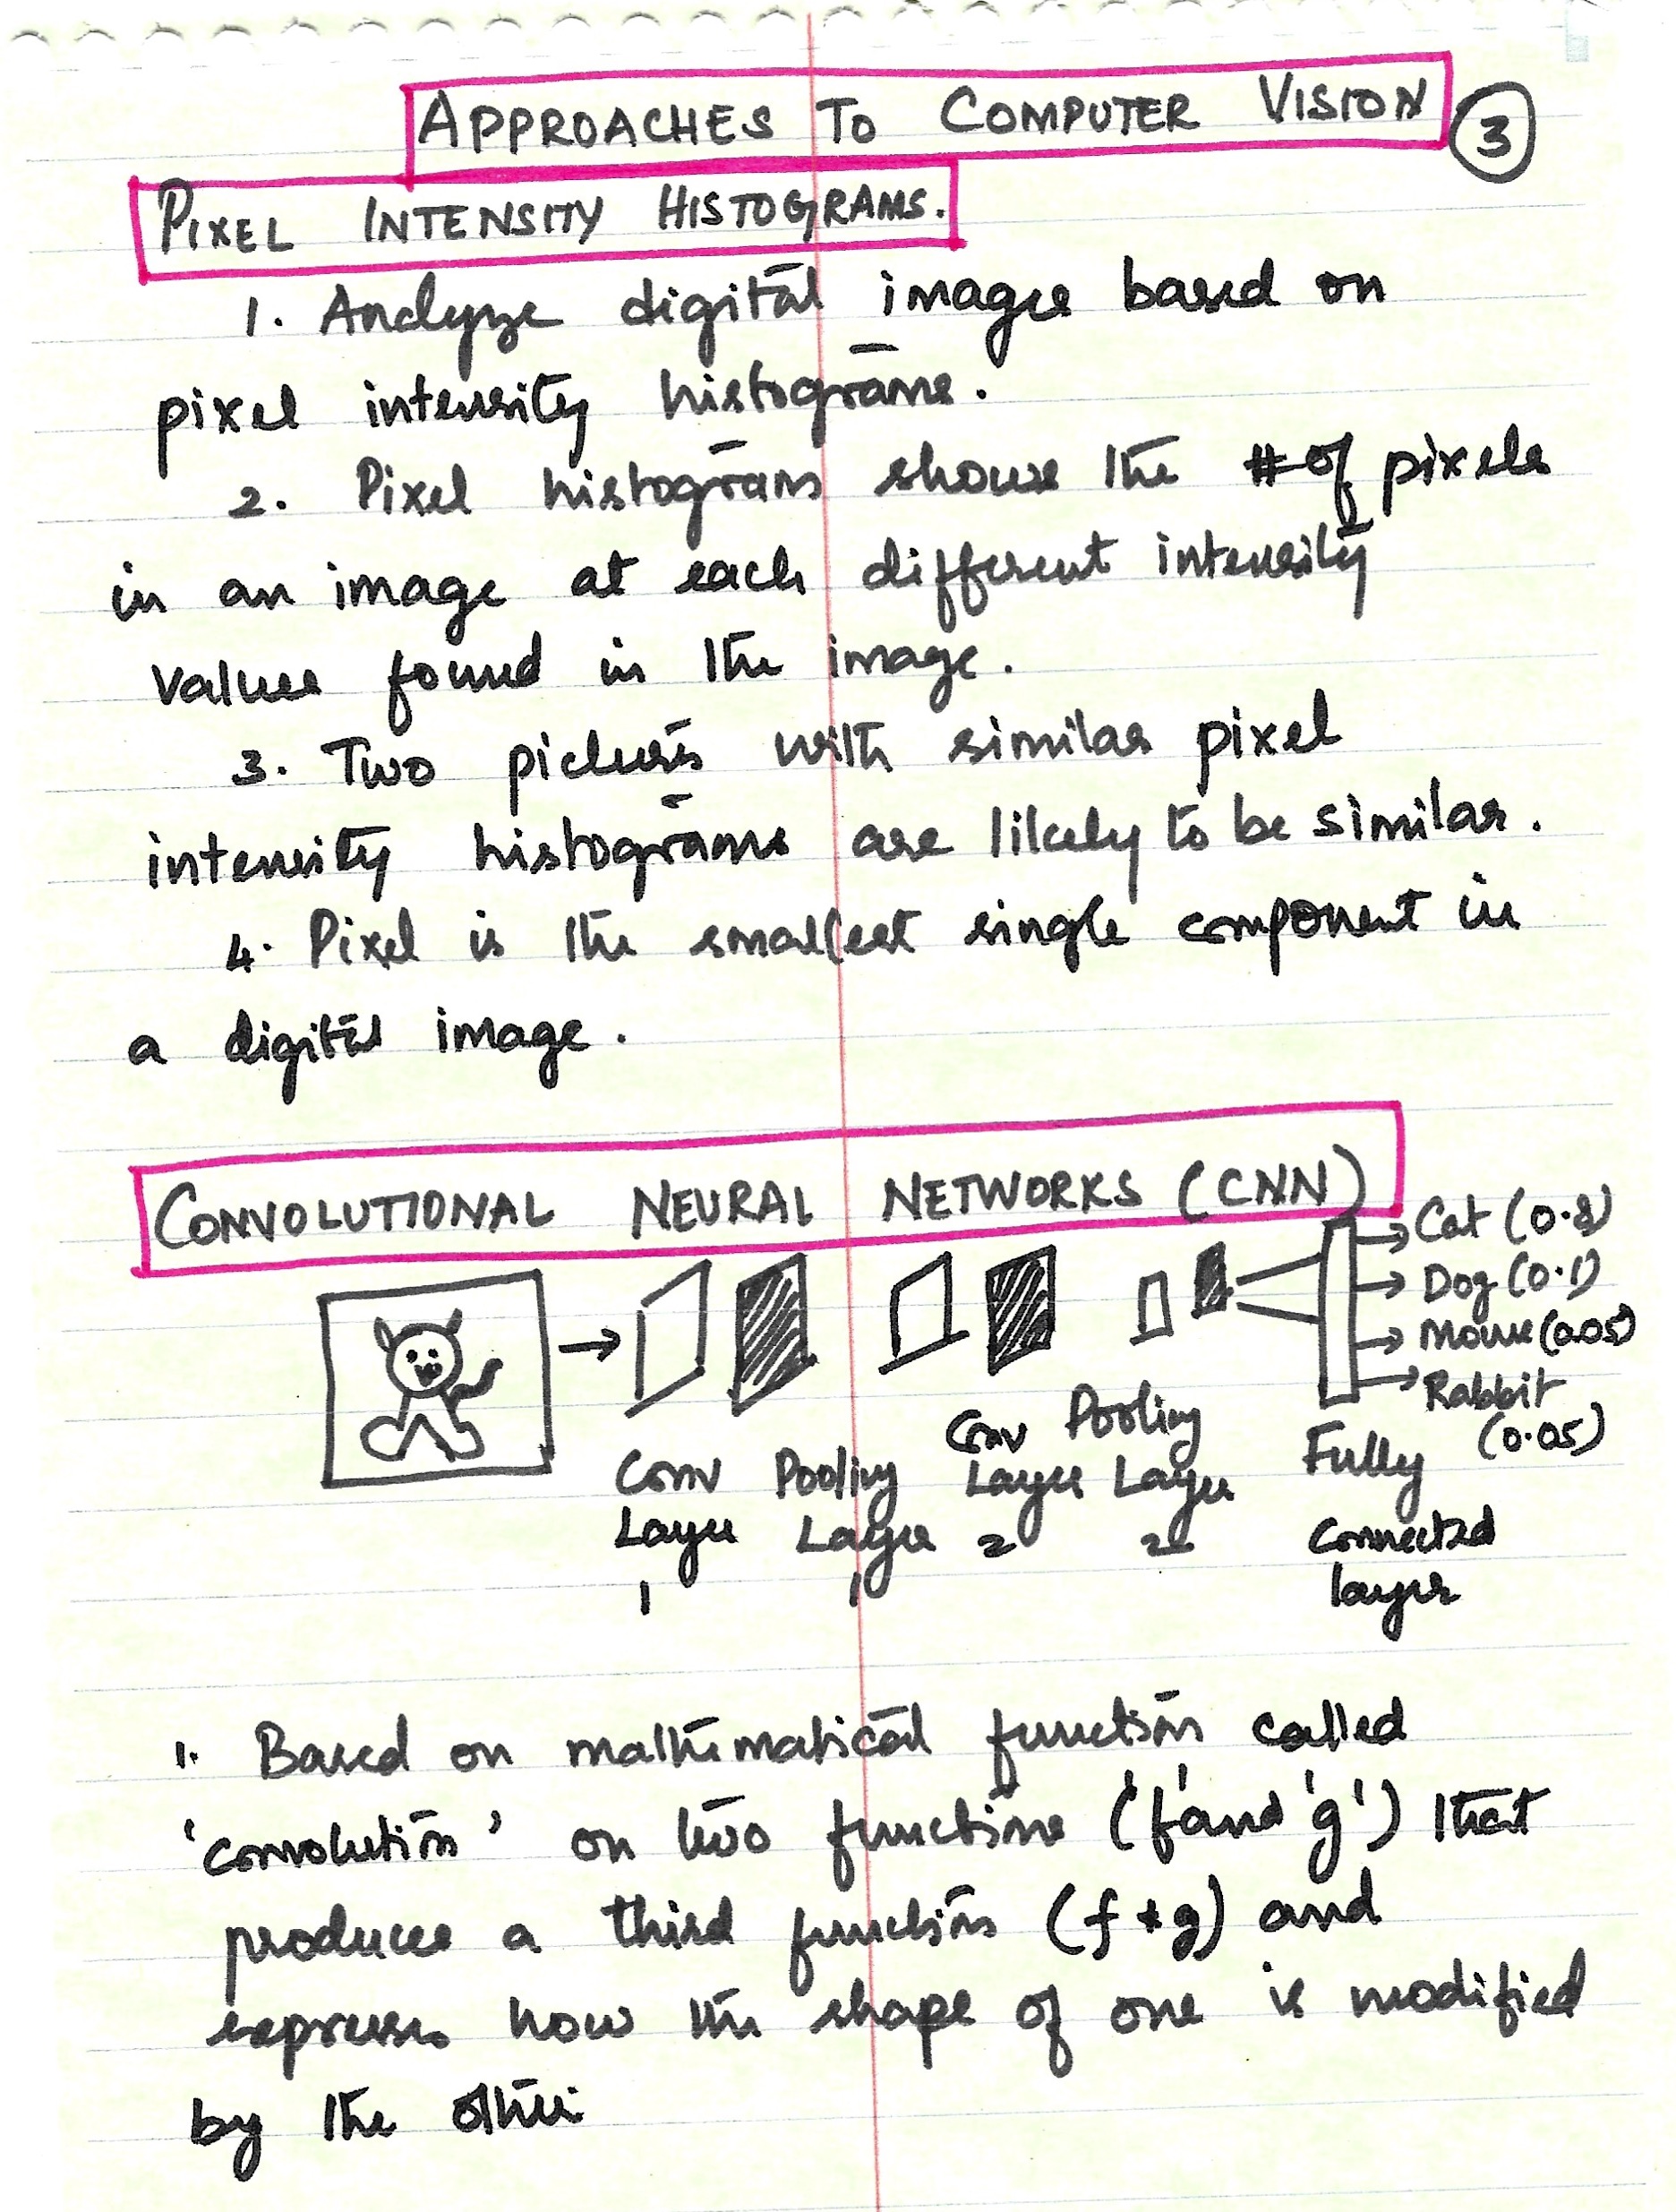 APPROACHES TO COMPUTER VISION 3
PIXEL INTENSITY HISTOGRAMS.
1. Analyze digital images based on
pixel intensity histograms.
2. Pixel histogram shows the # of pixels
in an image at each different intensity
values found in the image.
3. Two pictures with similar pixel
intensity histograms are likely to be similar.
4. Pixel is the smallest single component in
a digital image.
CONVOLUTIONAL NEURAL NETWORKS (CNN)
Cat (0.8)
Dog (0.1)
Mouse (0.05)
Rabbit
(0.05)
Conv Layer 1
Pooling Layer 1
Conv Layer 2
Pooling Layer 2
Fully Connected layer
1. Based on mathematical function called
'convolution' on two functions ('f' and 'g') that
produces a third function (f * g) and
expresses how the shape of one is modified
by the other.